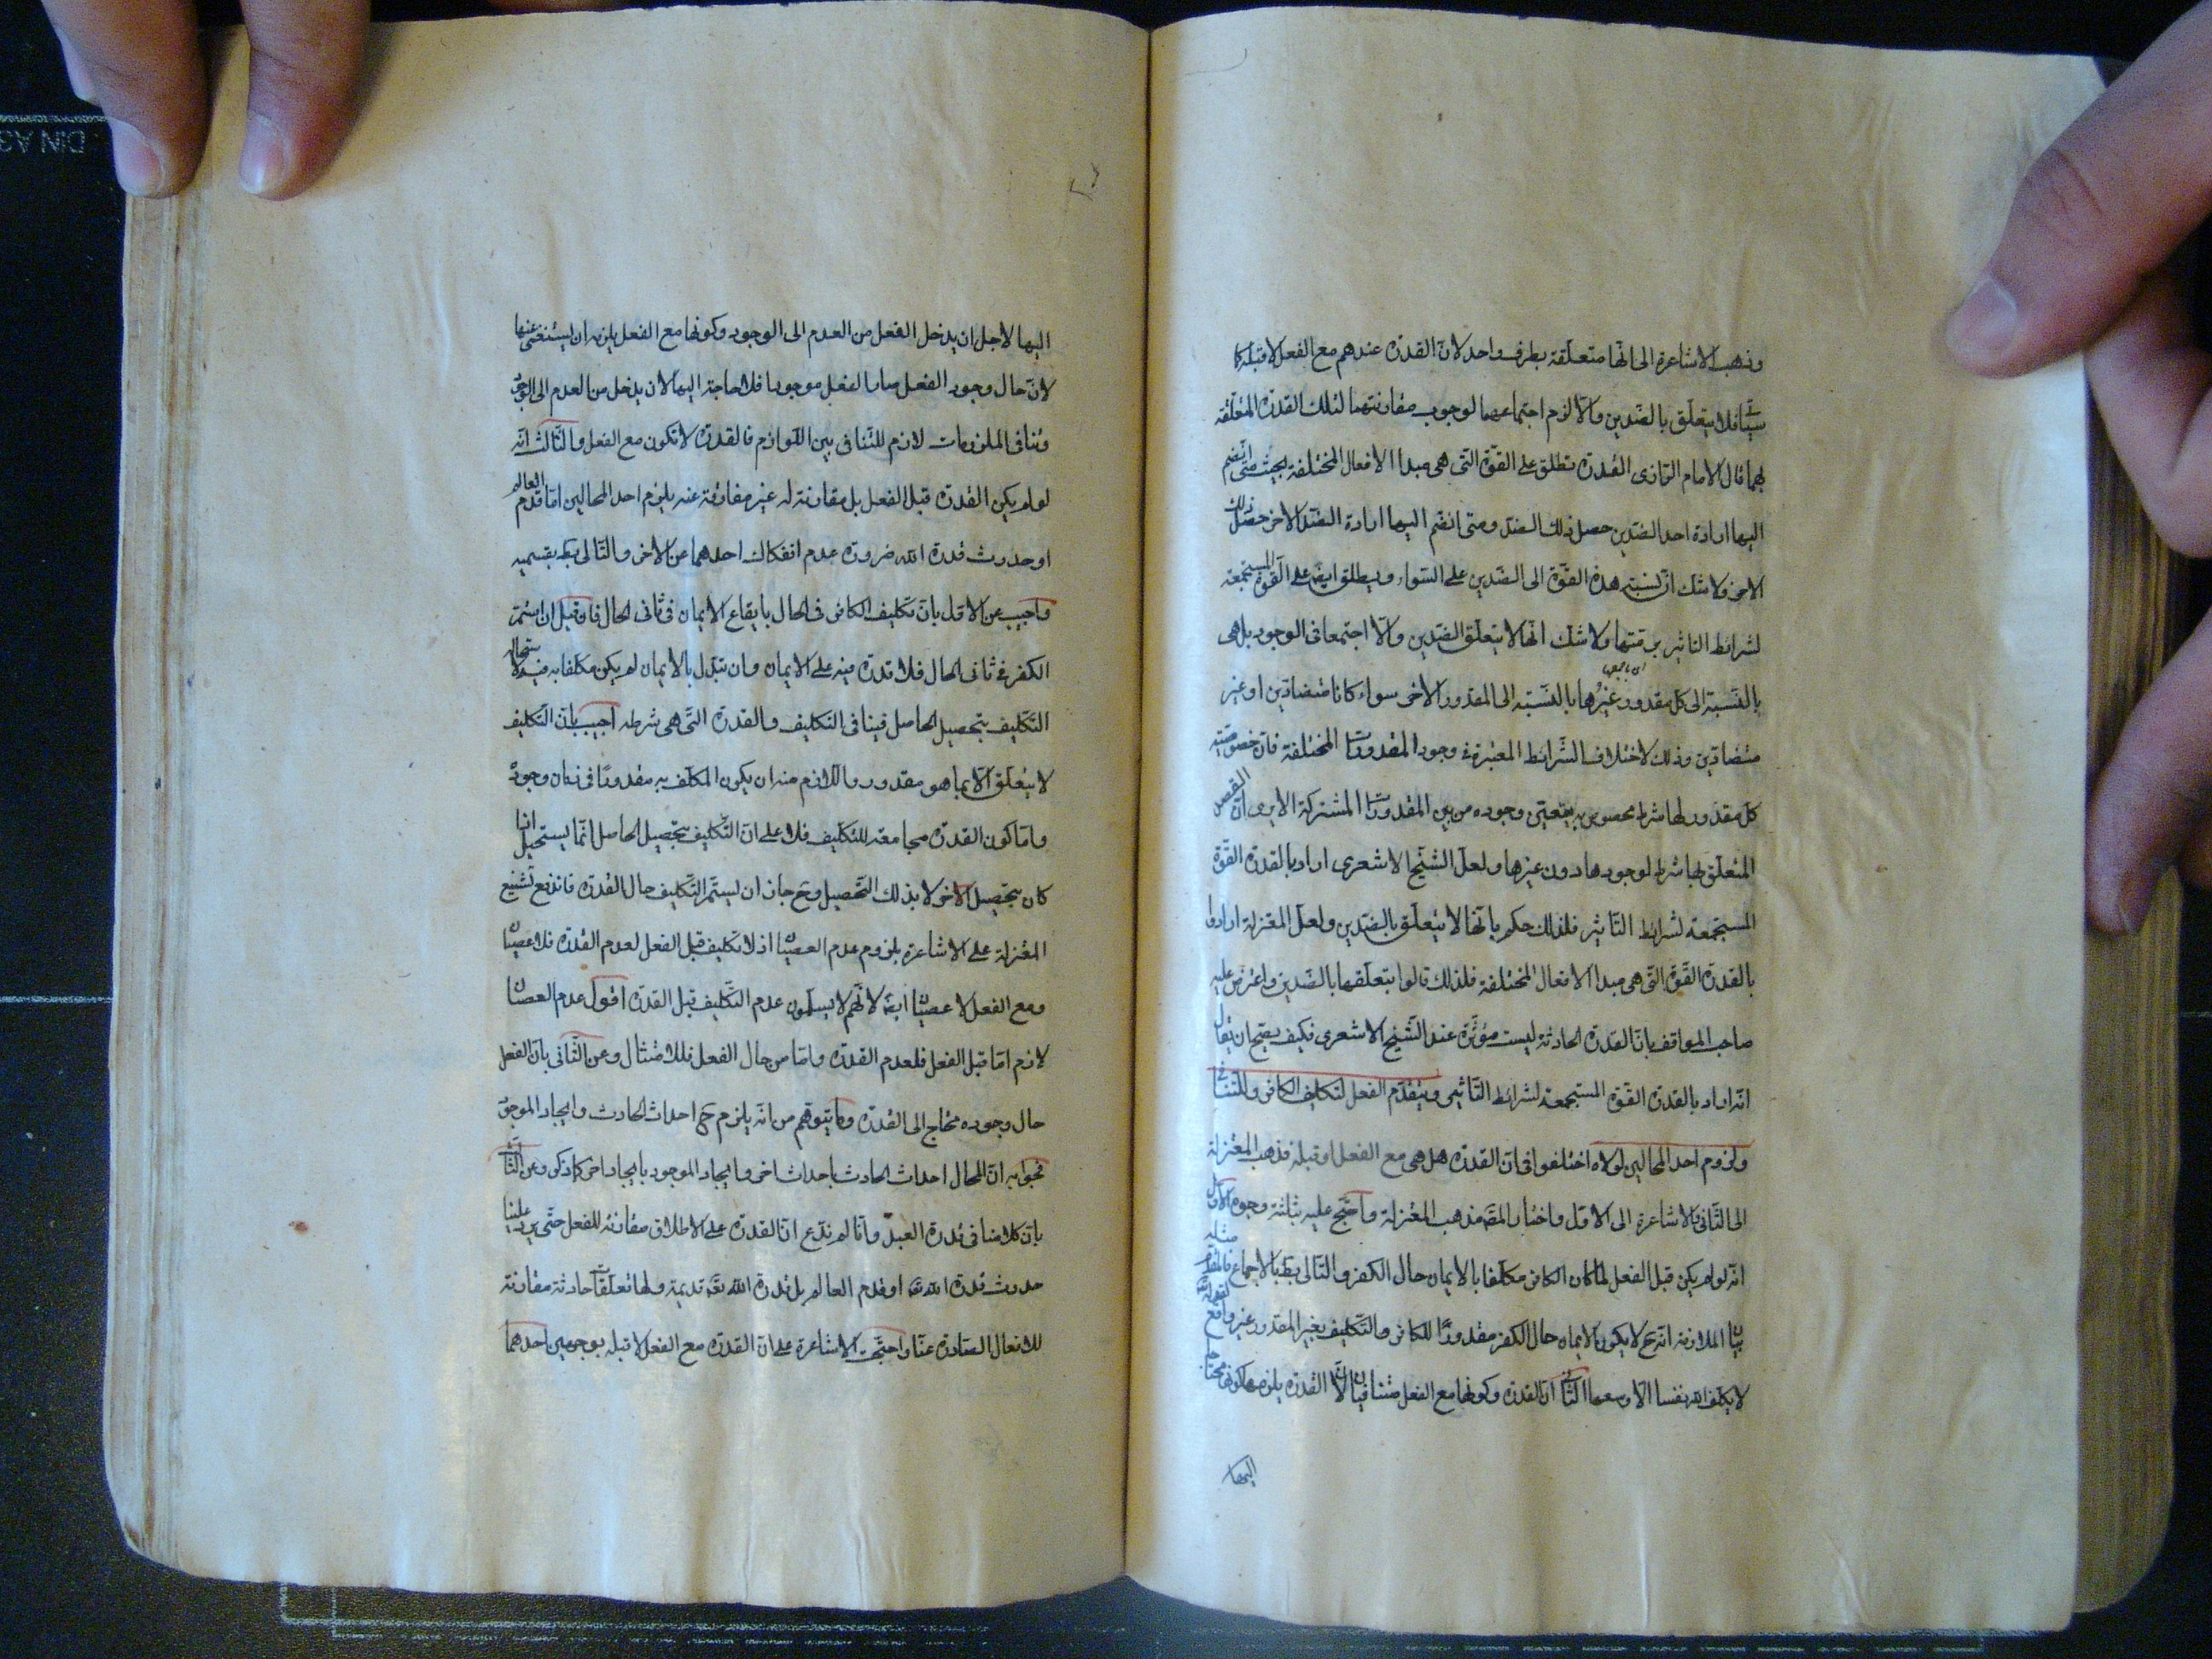 وذهب الاشاعرة الى انها متعلقة بطرف واحد لان القدرة عندهم مع الفعل لا قبله كما
سيأتى فلا يتعلق بالضدين والا لزم اجتماعهما لوجوب مقارنتهما لتلك القدرة المتعلقة
بهما قال الامام الرازى القدرة تطلق على القوة التى هى مبدأ الافعال المختلفة بحيث متى انضم
اليها ارادة احد الضدين حصل ذلك الضد ومتى انضم اليها ارادة الضد الاخر حصل ذلك
الاخر ولا شك ان نسبة هذه القوة الى الضدين على السواء ويطلق ايضا على القوة المستجمعة
لشرائط التاثير برمتها ولا شك انها لا يتعلق بالضدين والا اجتمعا فى الوجود بل هى
بالنسبة الى كل مقدور غيرها بالنسبة الى المقدور الاخر سواء كانا متضادين او غير
متضادين وذلك لاختلاف الشرائط المعتبرة فى وجود المقدورات المختلفة فان خصوصية
كل مقدور لها شرط مخصوص به يتعين وجوده من بين المقدورات المشتركة الا يرى ان القصد
المتعلق بها شرط لوجودها دون غيرها ولعل الشيخ الاشعرى اراد بالقدرة القوة
المستجمعة لشرائط التاثير فلذلك حكم بانها لا يتعلق بالضدين ولعل المعتزلة ارادوا
بالقدرة القوة التى هى مبدأ الافعال المختلفة فلذلك قالوا بتعلقها بالضدين واعترض عليه
صاحب المواقف بان القدرة الحادثة ليست مؤثرة عند الشيخ الاشعرى فكيف يصح ان يقال
انه اراد بالقدرة القوة المستجمعة لشرائط التاثير ويتقدم الفعل لتكليف الكافر وللتنافى
ولزوم احد المحالين لولاه اختلفوا فى ان القدرة هل هى مع الفعل او قبله فذهب المعتزلة
الى الثانى والاشاعرة الى الاول واختار المص مذهب المعتزلة واحتج عليه بثلثة وجوه الاول
انه لو لم يكن قبل الفعل لما كان الكافر مكلفا بالايمان حال الكفر والتالى بط بالاجماع فالمقدم مثله
بيان الملازمة انه ح لا يكون الايمان حال الكفر مقدورا للكافر والتكليف بغير المقدور غير واقع لقوله تعالى
لا يكلف الله نفسا الا وسعها الثانى ان القدرة وكونها مع الفعل متنافيان لان القدرة يلزمها كونها محتاجا
اليها
اليها لاجل ان يدخل الفعل من العدم الى الوجود وكونها مع الفعل يلزمه ان يستغنى عنها
لان حال وجود الفعل صار الفعل موجودا فلا حاجة اليها لان يدخل من العدم الى الوجود
وتنافى الملزومات لازم للتنافى بين اللوازم فالقدرة لا تكون مع الفعل والثالث انه
لو لم يكن القدرة قبل الفعل بل مقارنة له غير مفارقة عنه يلزم احد المحالين اما قدم العالم
او حدوث قدرة الله ضرورة عدم انفكاك احدهما عن الاخر والتالى بط بقسميه
واجيب عن الاول بان تكليف الكافر فى الحال بايقاع الايمان فى ثانى الحال فان قيل ان استمر
الكفر فى ثانى الحال فلا قدرة فيه على الايمان وان تبدل بالايمان لم يكن مكلفا به فيه لاستحالة
التكليف بتحصيل الحاصل فينافى التكليف والقدرة التى هى شرطه اجيب بان التكليف
لا يتعلق الا بما هو مقدور واللازم منه ان يكون المكلف به مقدورا فى زمان وجوده
واما كون القدرة مجامعة للتكليف فلا على ان التكليف بتحصيل الحاصل انما يستحيل اذا
كان بتحصيل الاخر لا بذلك التحصيل وح جاز ان يستمر التكليف حال القدرة فاندفع تشنيع
المعتزلة على الاشاعرة بلزوم عدم العصيان اذ لا تكليف قبل الفعل لعدم القدرة فلا عصيان
ومع الفعل لا عصيان ايضا لانهم لا يسلمون عدم التكليف قبل القدرة اقول عدم العصيان
لازم اما قبل الفعل فلعدم القدرة واما من حال الفعل فللامتثال وعن الثانى بان الفعل
حال وجوده محتاج الى القدرة وما يتوهم من انه يلزم ح احداث الحادث وايجاد الموجود
فجوابه ان المحال احداث الحادث باحداث اخر وايجاد الموجود بايجاد اخر كما ذكر وعن الثالث
بان كلامنا فى قدرة العبد وانا لم ندع ان القدرة على الاطلاق مقارنة للفعل حتى يرد علينا
حدوث قدرة الله تعالى او قدم العالم بل قدرة الله تعالى قديمة ولها تعلقات حادثة مقارنة
للافعال الصادرة عنا واحتجت الاشاعرة على ان القدرة مع الفعل لا قبله بوجهين احدهما